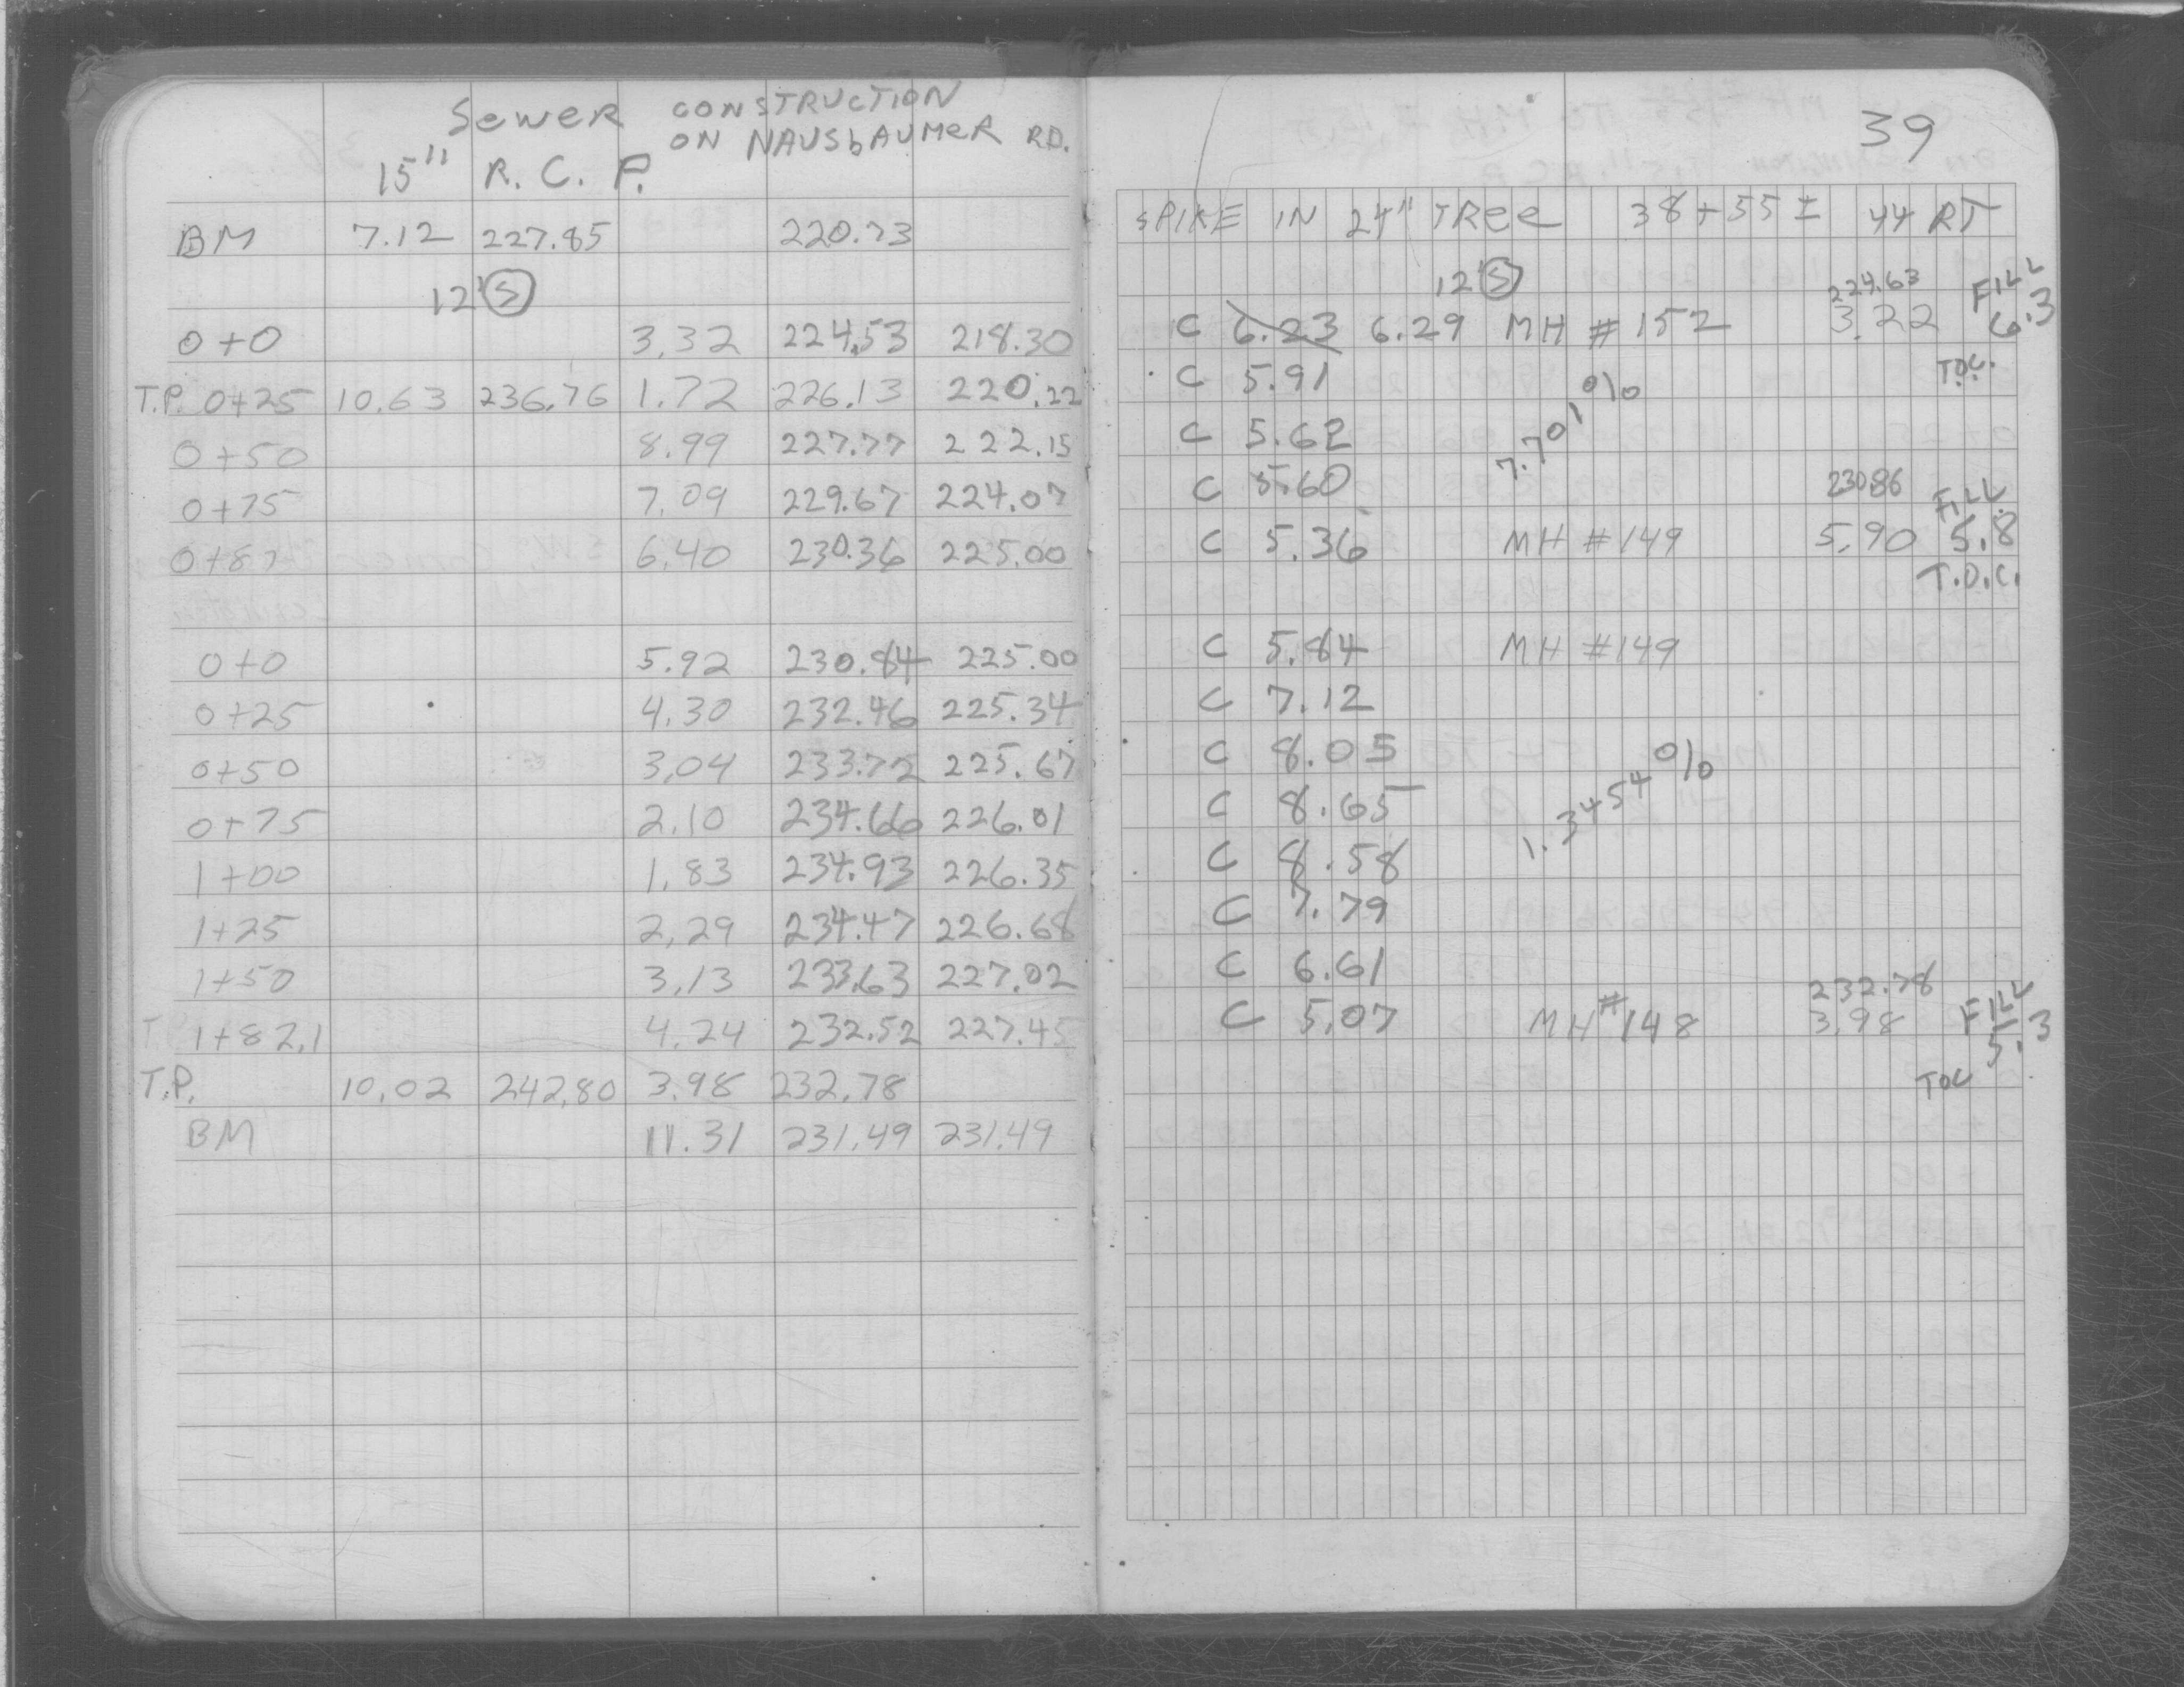 Sewer CONSTRUCTION
ON NAUSbAUMeR RD.
15" R. C. P.
BM 7.12 227.85 220.73
12' S
0+0 3.32 224.53 218.30
T.P. 0+25 10.63 236.76 1.72 226.13 220.22
0+50 8.99 227.77 222.15
0+75 7.09 229.67 224.07
0+87 6.40 230.36 225.00
0+0 5.92 230.84 225.00
0+25 4.30 232.46 225.34
0+50 3.04 233.72 225.67
0+75 2.10 234.66 226.01
1+00 1.83 234.93 226.35
1+25 2.29 234.47 226.68
1+50 3.13 233.63 227.02
1+82.1 4.24 232.52 227.45
T.P. 10.02 242.80 3.98 232.78
BM 11.31 231.49 231.49
39
SPIKE IN 24" TRee 38+55 ± 44 RT
12' S
224.63
C 6.23 6.29 MH # 152 3.22 FILL 6.3
C 5.91 T.O.C.
C 5.62 7.701%
C 5.60 230.86
C 5.36 MH #149 5.90 FILL 5.8
T.O.C.
C 5.84 MH #149
C 7.12
C 8.05
C 8.65 1.3454%
C 8.58
C 7.79
C 6.61
232.78
C 5.07 MH #148 3.98 FILL 5.3
TOC